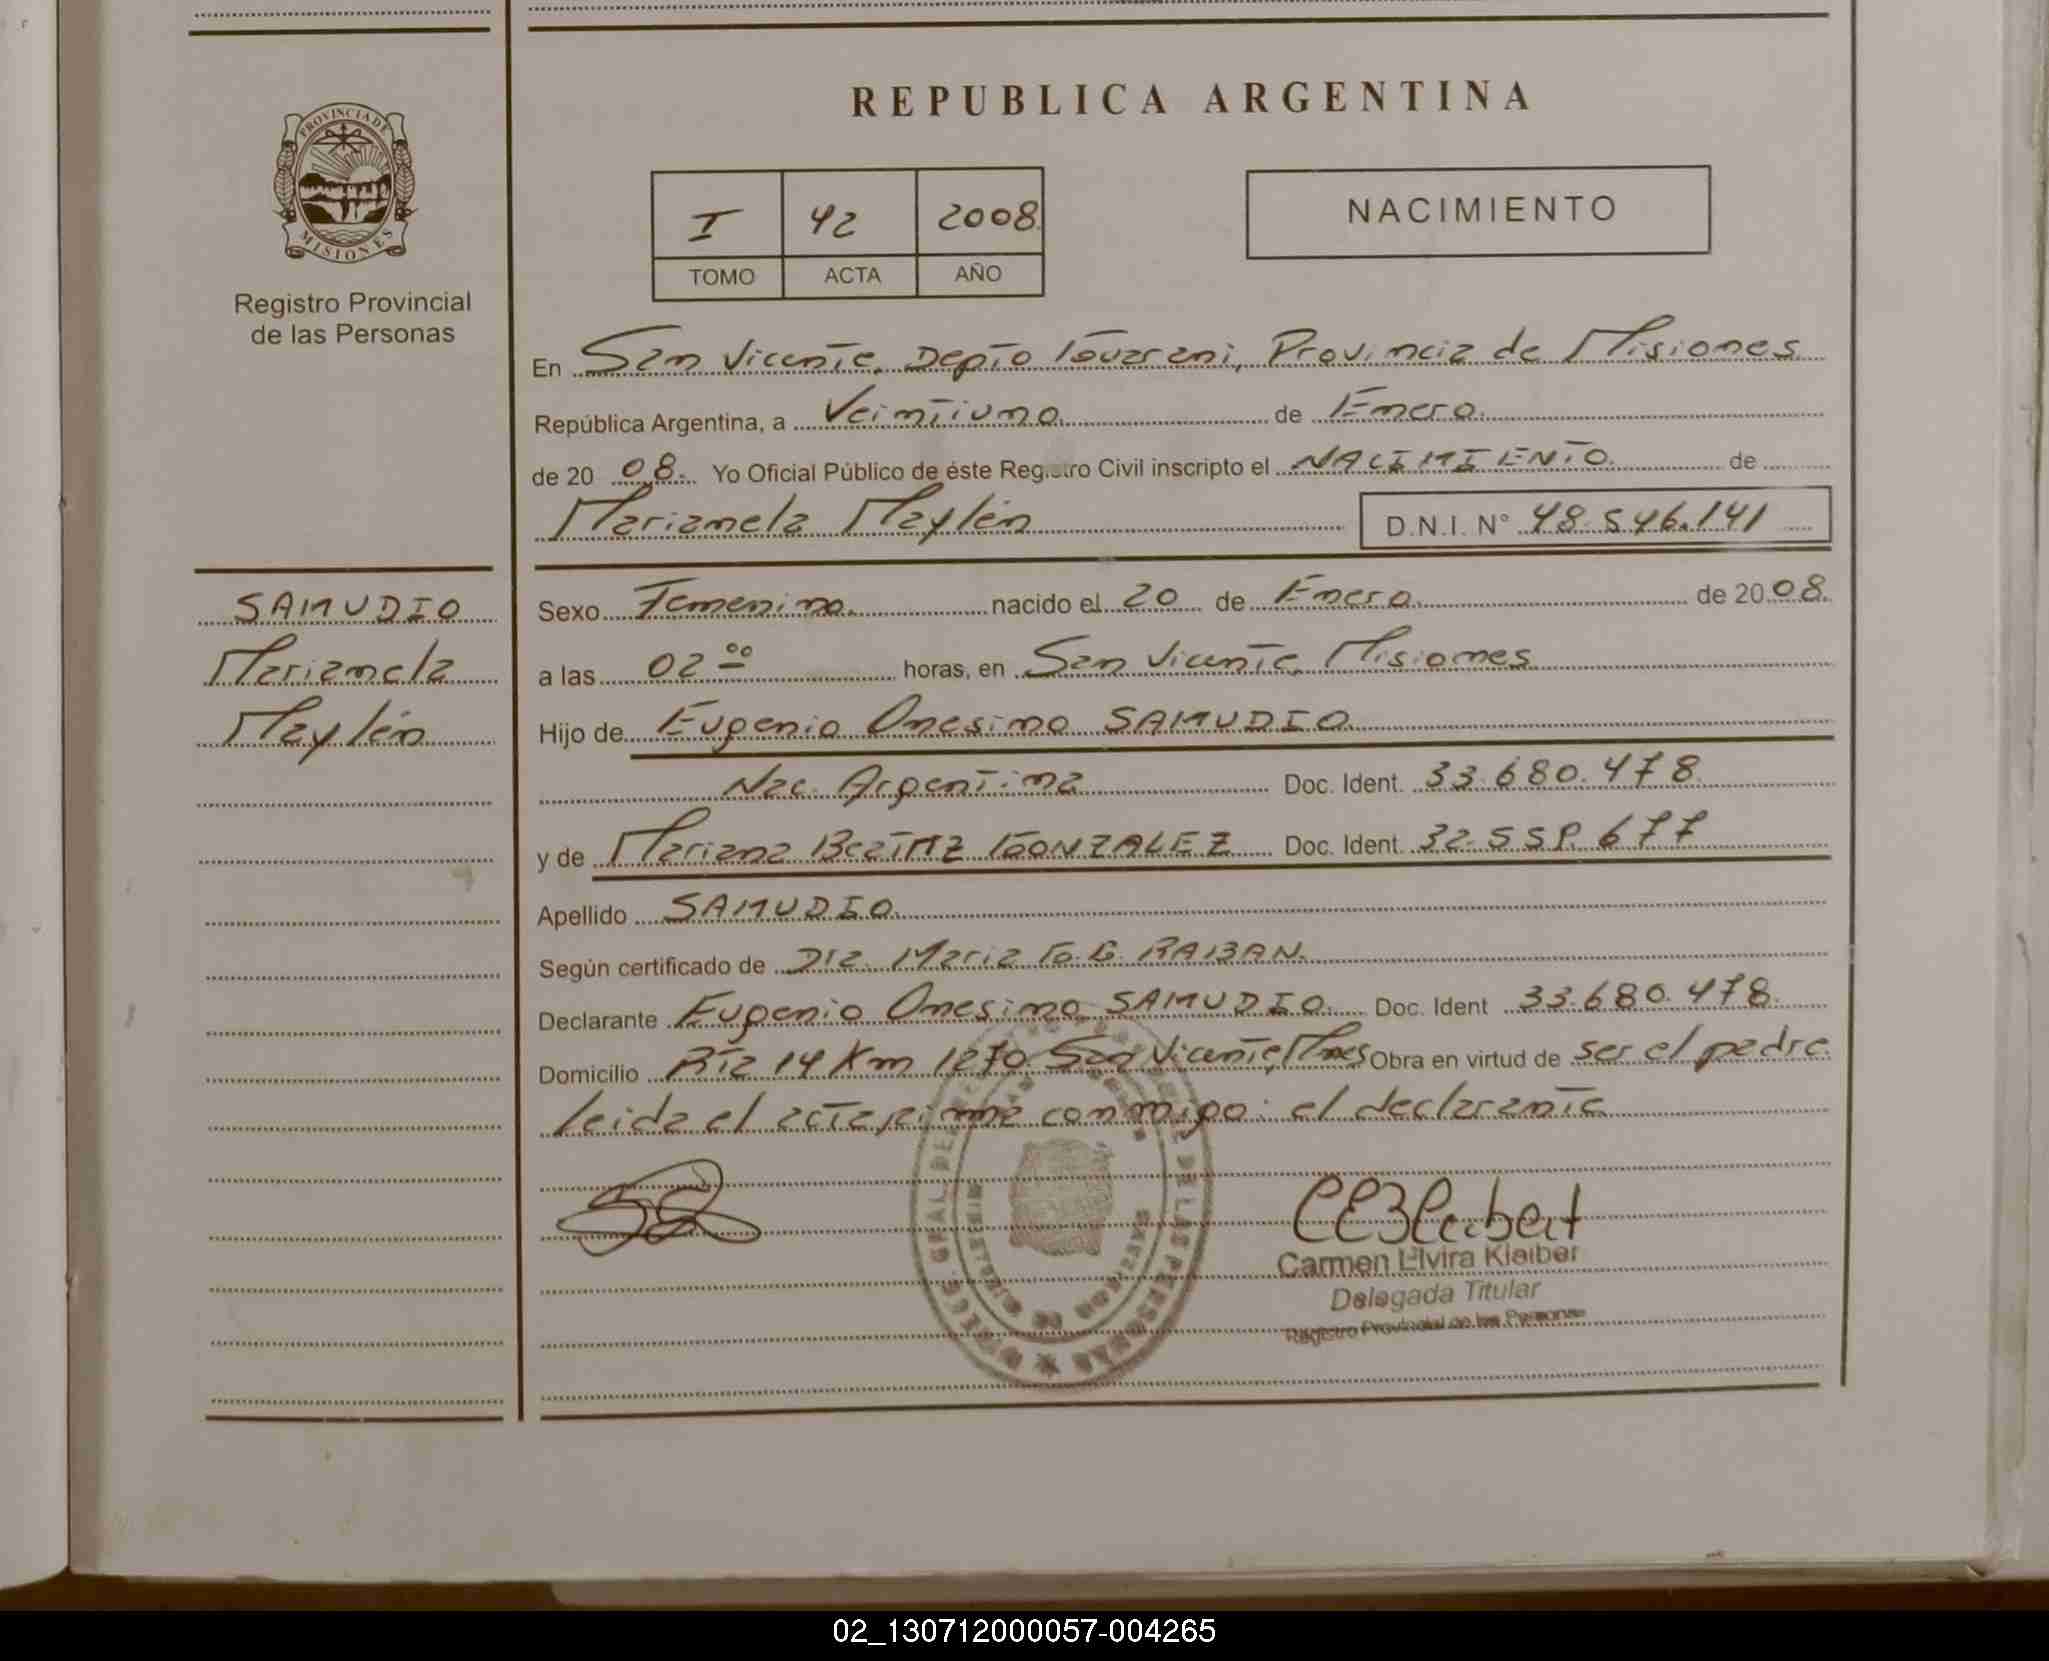 REPUBLICA ARGENTINA
PROVINCIA DE
MISIONES
Registro Provincial
de las Personas
I 42 2008
TOMO ACTA AÑO
NACIMIENTO
En San Vicente, Depto Guarani, Provincia de Misiones
República Argentina, a Veintiuno de Enero
de 2008. Yo Oficial Público de éste Registro Civil inscripto el NACIMIENTO de
Marianela Maylén D.N.I. N° 48.546.141
SAMUDIO
Marianela
Maylén
Sexo Femenino nacido el 20 de Enero de 2008.
a las 02 00 horas, en San Vicente Misiones
Hijo de Eugenio Onesimo SAMUDIO
Nac. Argentina Doc. Ident. 33.680.478
y de Mariana Beatriz GONZALEZ Doc. Ident. 32.559.677
Apellido SAMUDIO
Según certificado de Dra. Maria G. G. RABAN.
Declarante Eugenio Onesimo SAMUDIO. Doc. Ident 33.680.478.
Domicilio Rta 14 Km 1270 San Vicente, Mnes Obra en virtud de ser el padre
leida el acta, firma conmigo: el declarante
DE LAS PERSONAS
Carmen Elvira Kleiber
Delegada Titular
Registro Provincial de las Personas
02_130712000057-004265